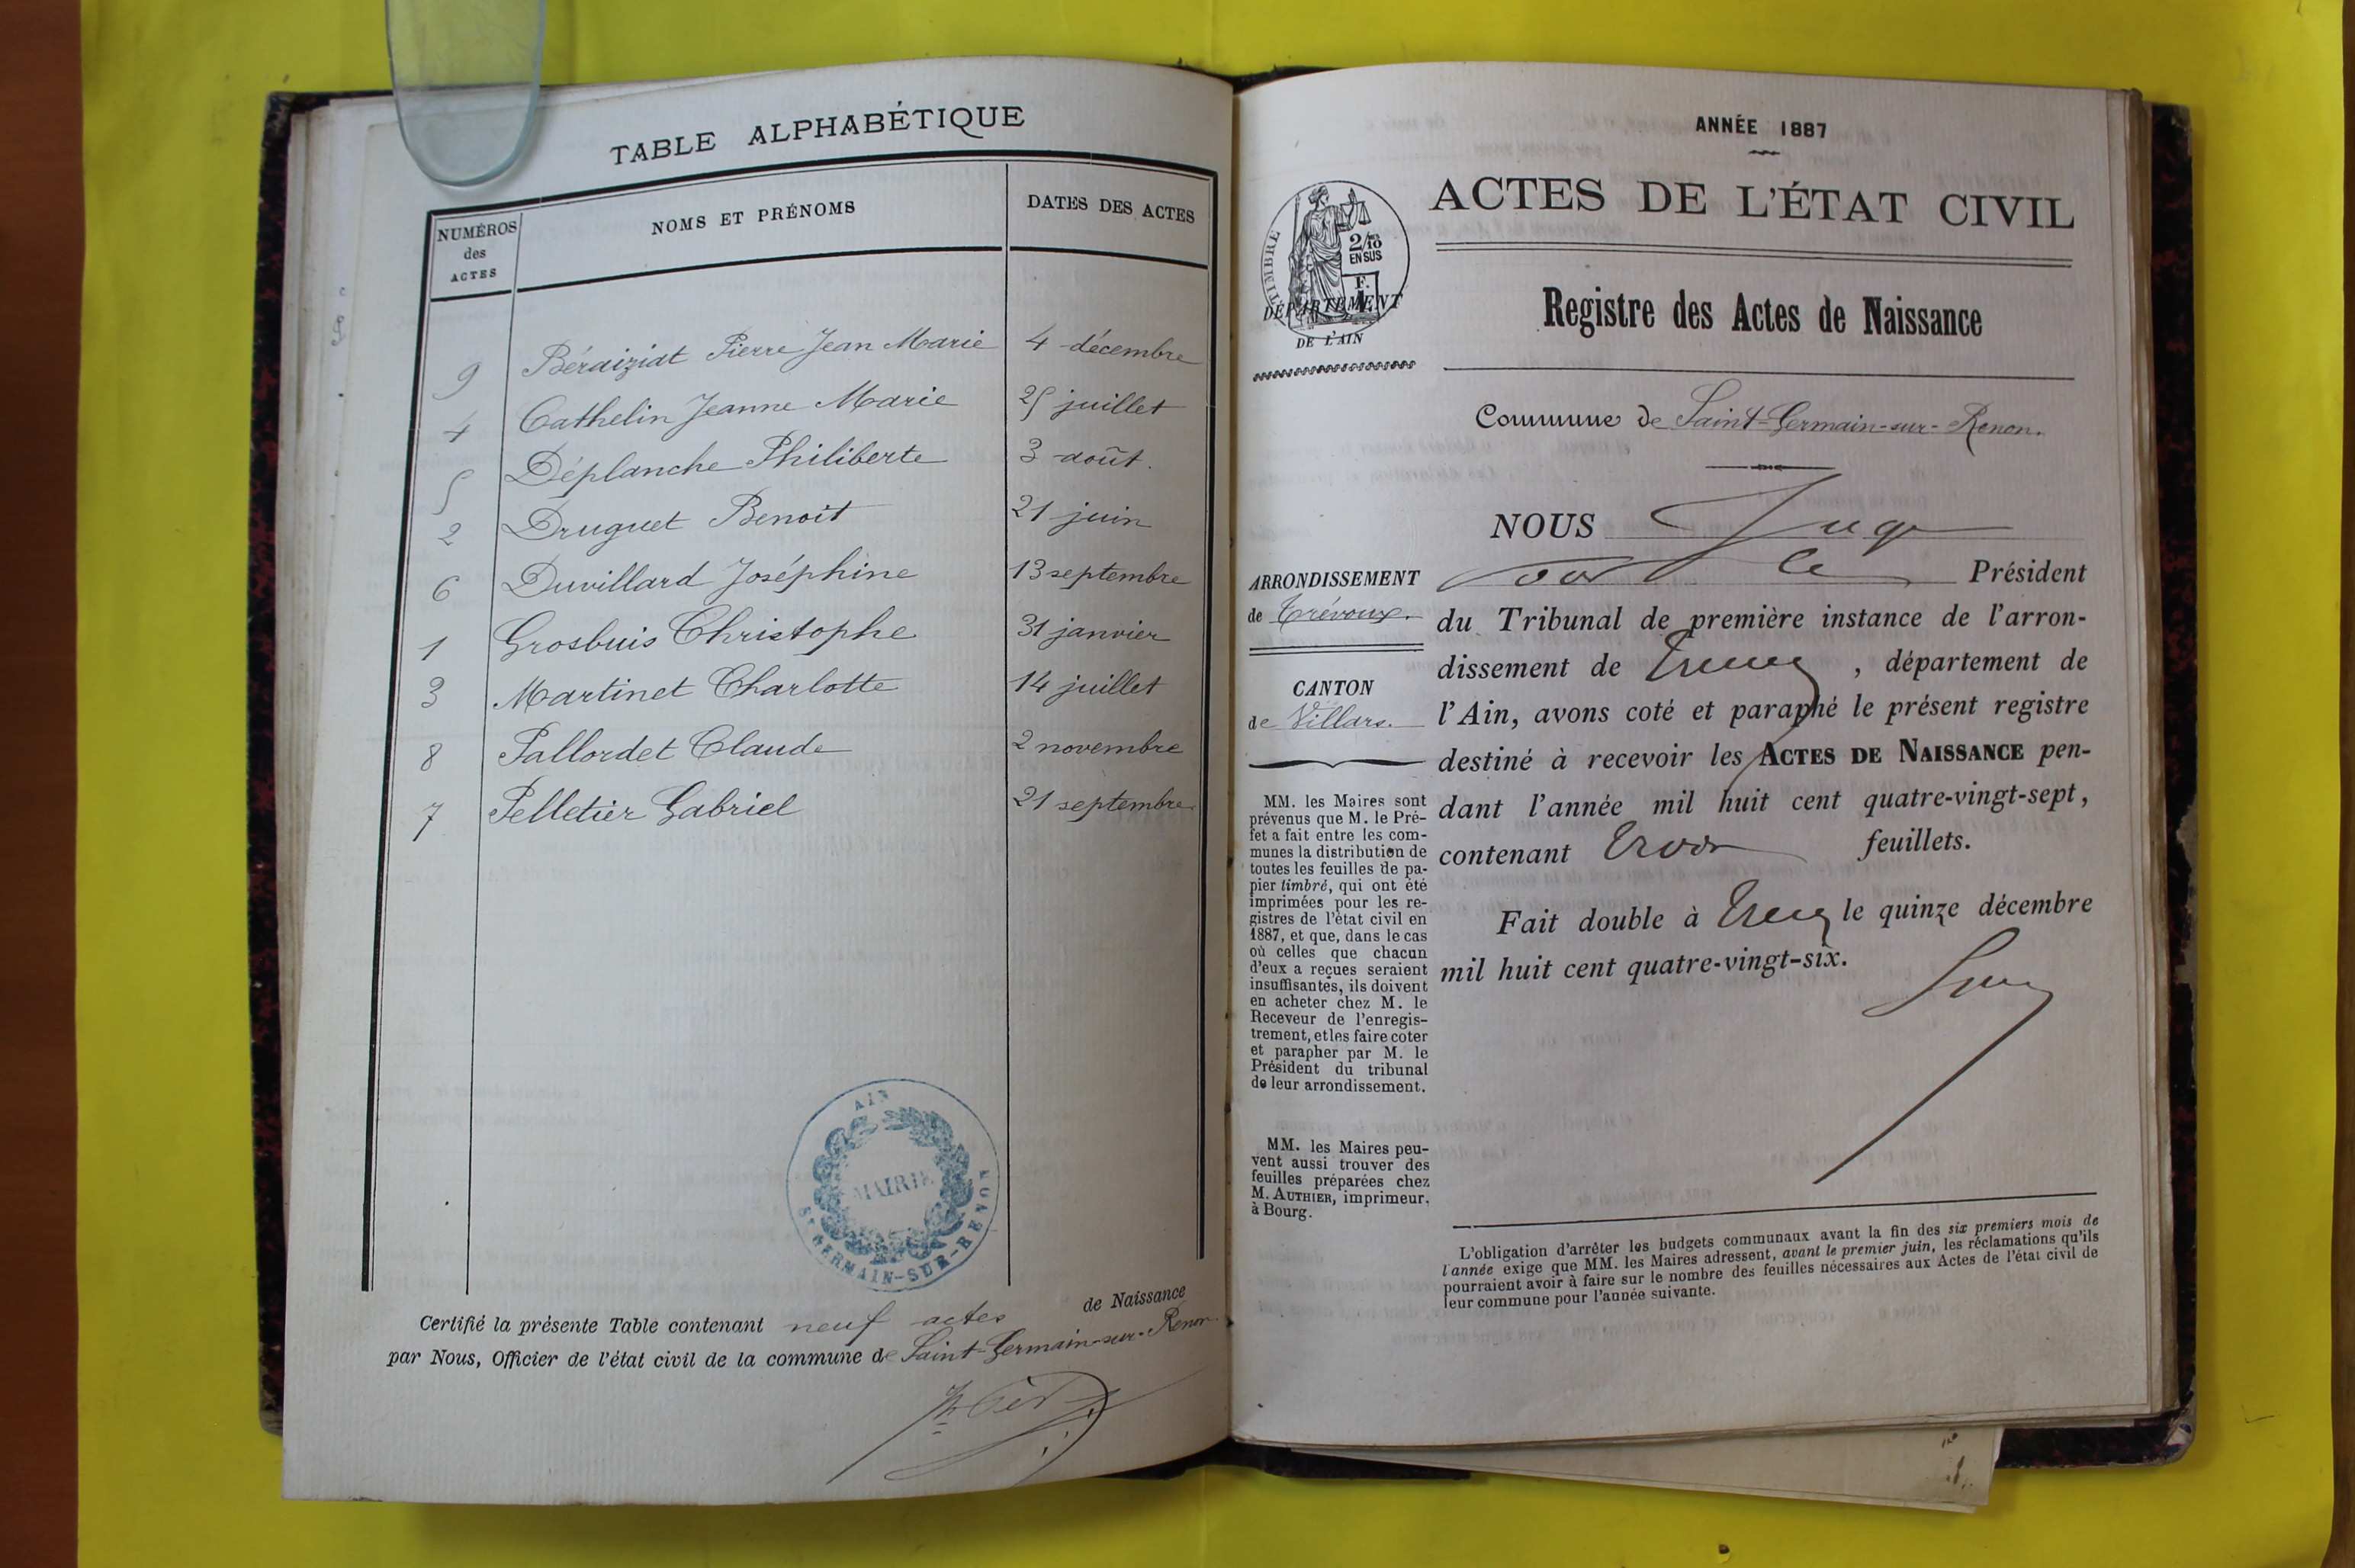 TABLE ALPHABÉTIQUE
NUMÉROS des ACTES NOMS ET PRÉNOMS DATES DES ACTES
9 Béraiziat Pierre Jean Marie 4 décembre
4 Cathelin Jeanne Marie 25 juillet
5 Déplanche Philiberte 3 août.
2 Druguet Benoit 21 juin
6 Duvillard Joséphine 13 septembre
1 Grosbuis Christophe 31 janvier
3 Martinet Charlotte 14 juillet
8 Pallordet Claude 2 novembre
7 Pelletier Gabriel 21 septembre
AIN
MAIRIE
St GERMAIN-SUR-RENON
Certifié la présente Table contenant neuf actes de Naissance
par Nous, Officier de l'état civil de la commune de Saint-Germain-sur-Renon
ANNÉE 1887
ACTES DE L'ÉTAT CIVIL
TIMBRE
2/10
EN SUS
F.
DÉPARTEMENT
DE L'AIN
Registre des Actes de Naissance
Commune de Saint-Germain-sur-Renon.
ARRONDISSEMENT
de Trévoux.
CANTON
de Villars.
MM. les Maires sont
prévenus que M. le Pré-
fet a fait entre les com-
munes la distribution de
toutes les feuilles de pa-
pier timbré, qui ont été
imprimées pour les re-
gistres de l'état civil en
1887, et que, dans le cas
où celles que chacun
d'eux a reçues seraient
insuffisantes, ils doivent
en acheter chez M. le
Receveur de l'enregis-
trement, et les faire coter
et parapher par M. le
Président du tribunal
de leur arrondissement.
MM. les Maires peu-
vent aussi trouver des
feuilles préparées chez
M. AUTHIER, imprimeur,
à Bourg.
NOUS Juge
le Président
du Tribunal de première instance de l'arron-
dissement de , département de
l'Ain, avons coté et paraphé le présent registre
destiné à recevoir les ACTES DE NAISSANCE pen-
dant l'année mil huit cent quatre-vingt-sept,
contenant trois feuillets.
Fait double à le quinze décembre
mil huit cent quatre-vingt-six.
L'obligation d'arrêter les budgets communaux avant la fin des six premiers mois de
l'année exige que MM. les Maires adressent, avant le premier juin, les réclamations qu'ils
pourraient avoir à faire sur le nombre des feuilles nécessaires aux Actes de l'état civil de
leur commune pour l'année suivante.